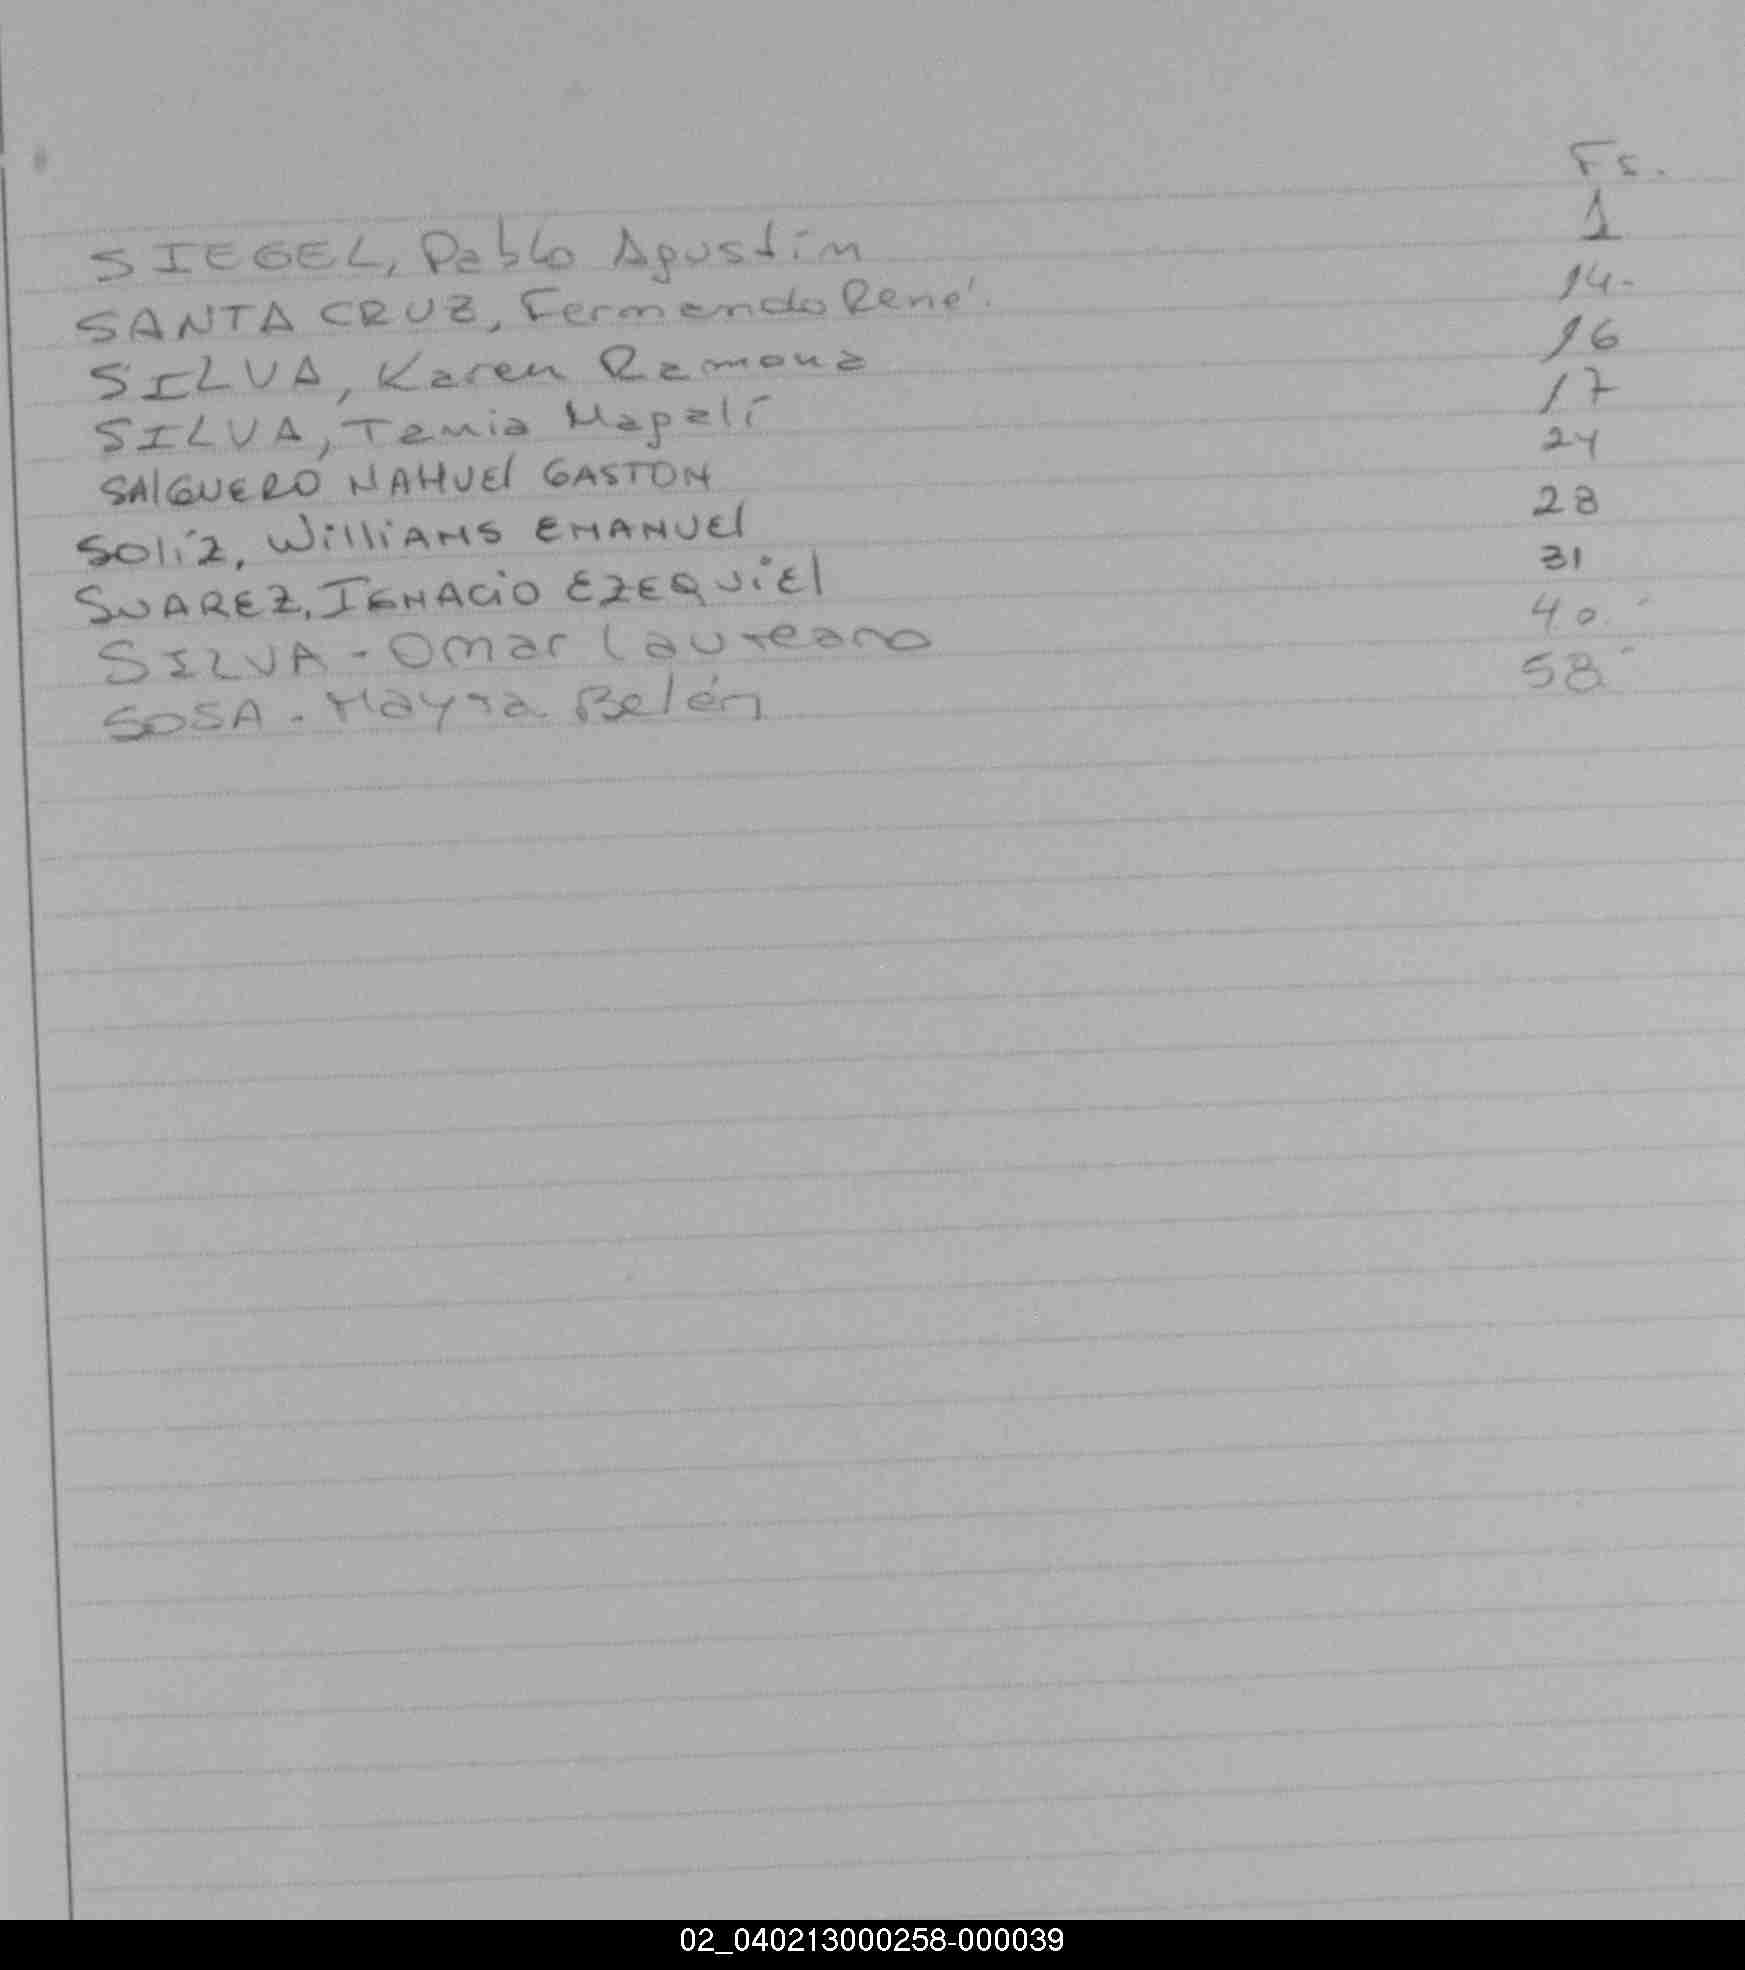 Fs.
SIEGEL, Pablo Agustín 1
SANTA CRUZ, Fernando René. 14-
SILVA, Karen Ramona 16
SILVA, Tania Magalí 17
SAlGUERO NAHUEl GASTON 24
SOliz, WilliAMS EMANUEl 28
SUAREZ, IGNACiO EZEQUiEl 31
SILVA - Omar Laureano 40.-
SOSA - Mayra Belén 58.-
02_040213000258-000039